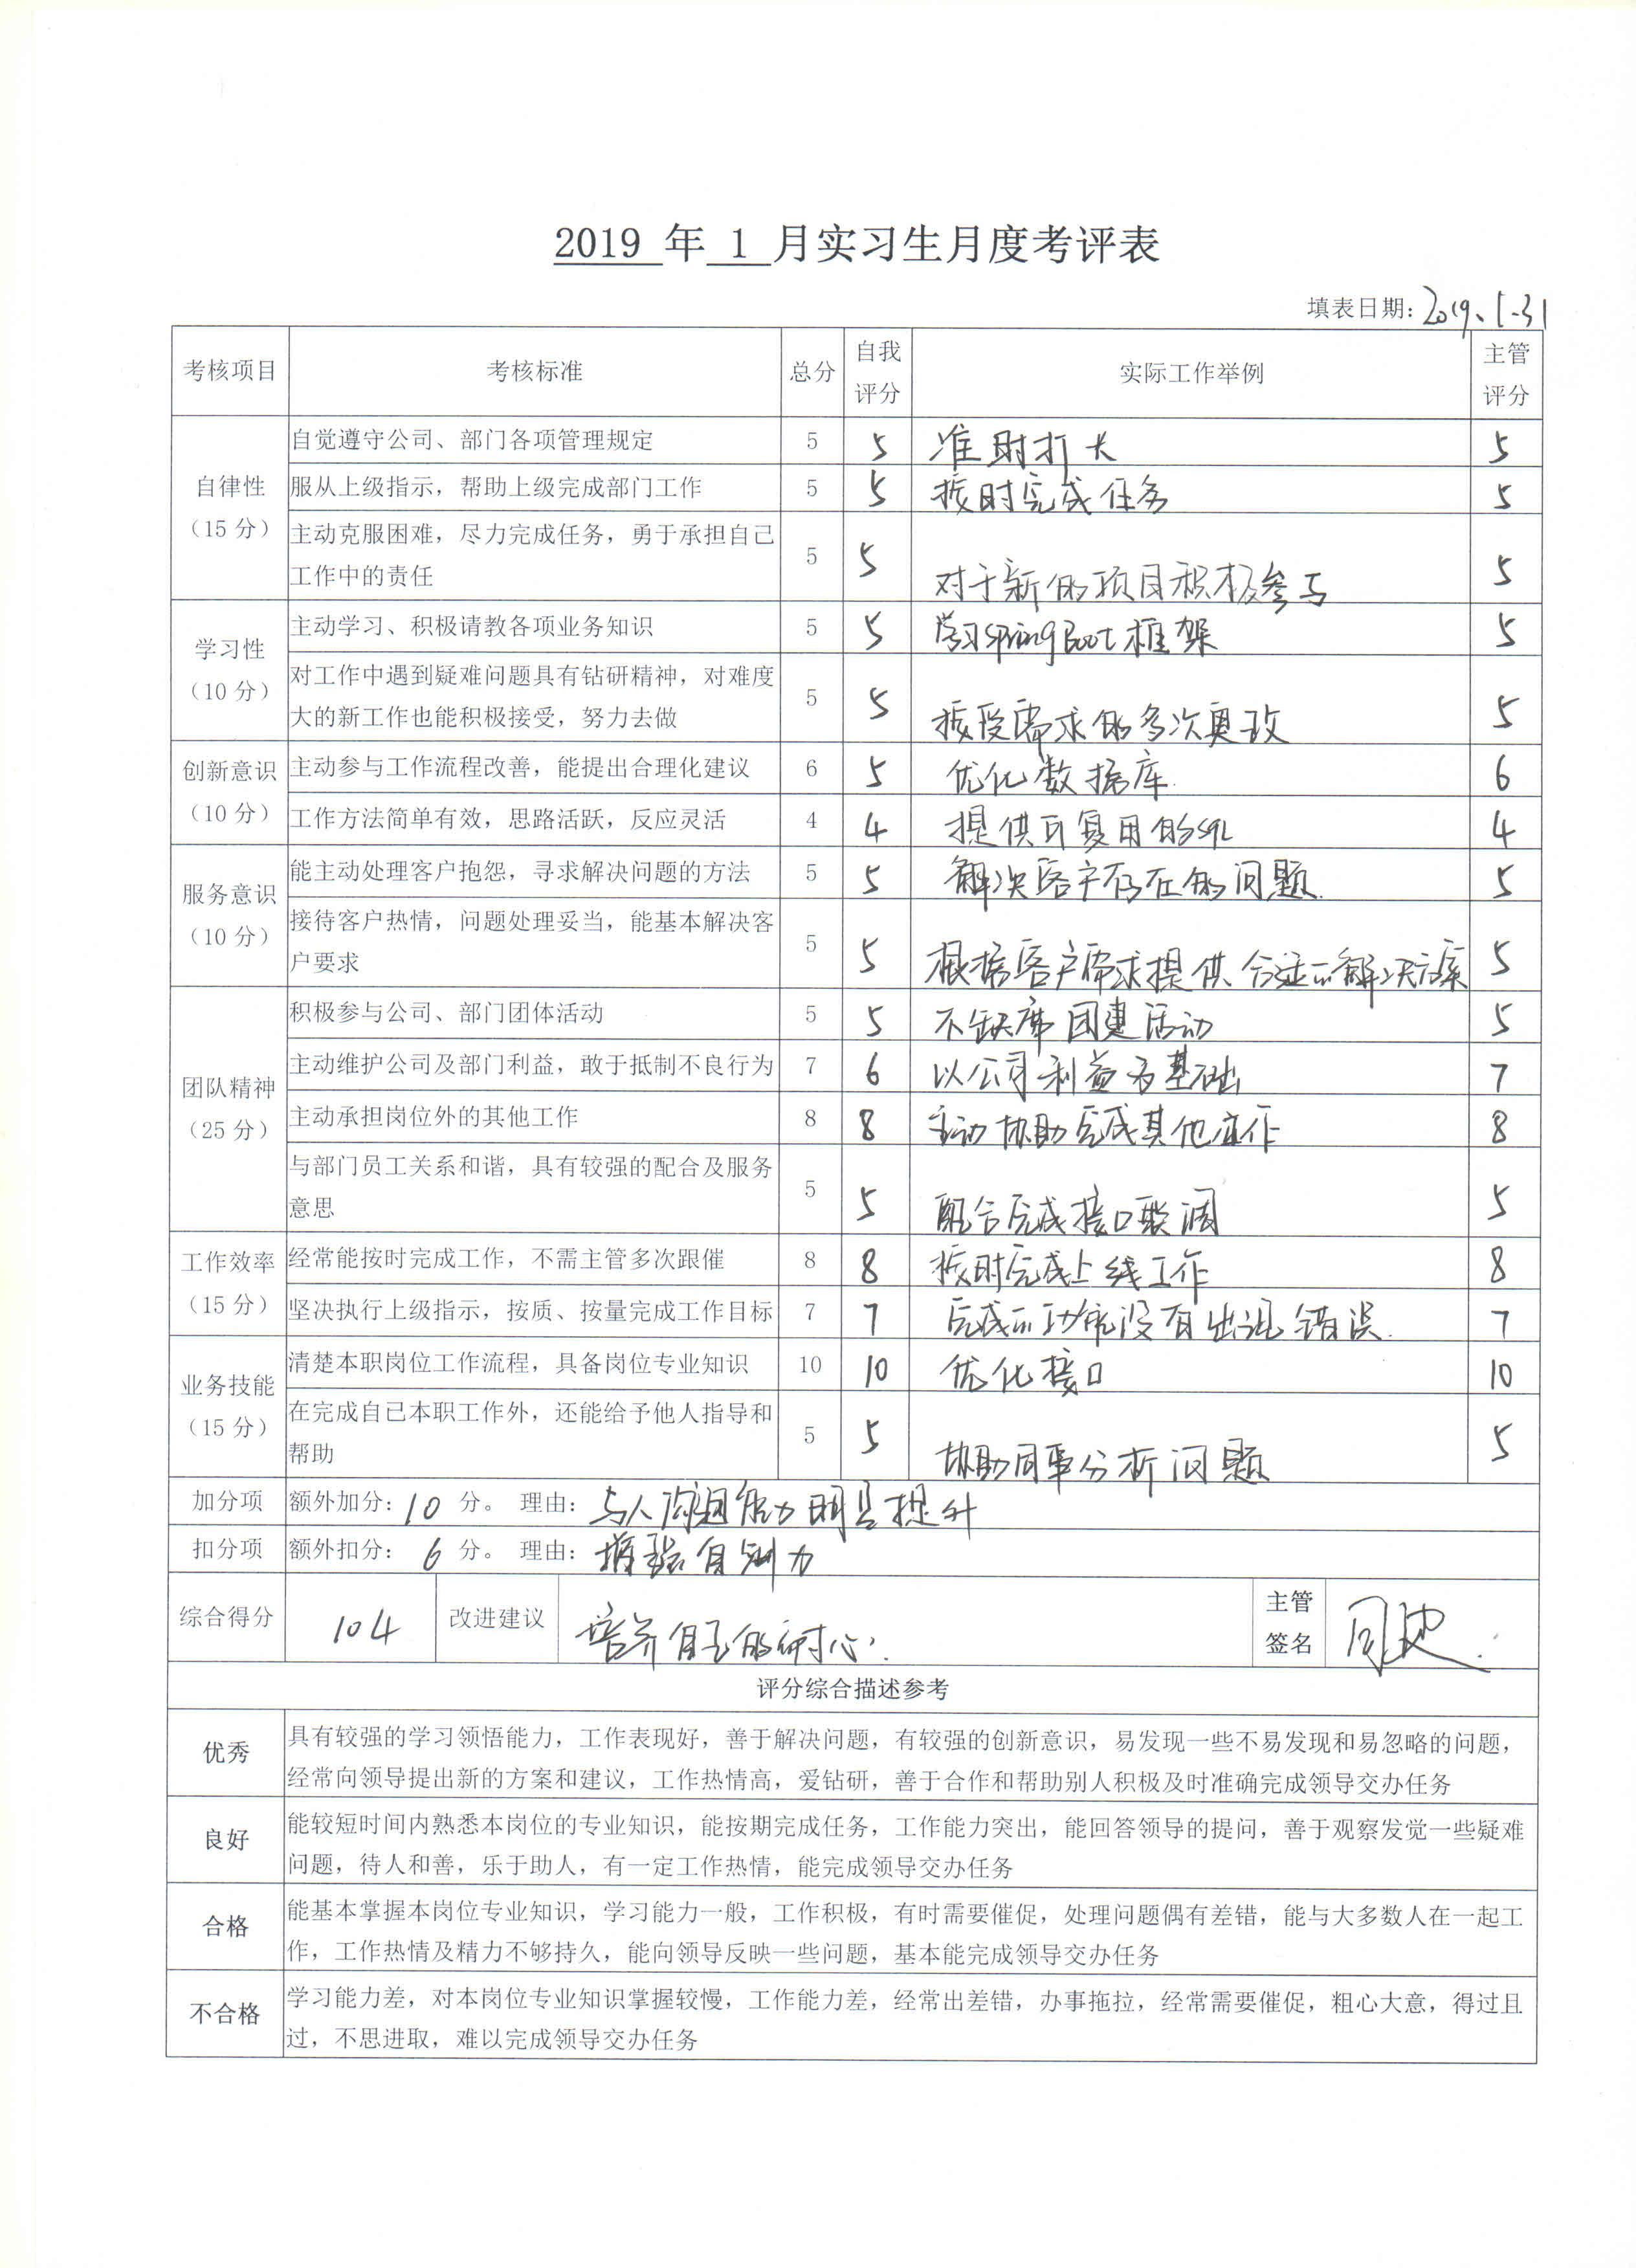 2019 年 1 月实习生月度考评表
填表日期：2019.1.31
考核项目 考核标准 总分 自我评分 实际工作举例 主管评分
自律性（15 分）
自觉遵守公司、部门各项管理规定 5 5 准时打卡 5
服从上级指示，帮助上级完成部门工作 5 5 按时完成任务 5
主动克服困难，尽力完成任务，勇于承担自己
工作中的责任 5 5 对于新的项目积极参与 5
学习性（10 分）
主动学习、积极请教各项业务知识 5 5 学习SpringBoot框架 5
对工作中遇到疑难问题具有钻研精神，对难度
大的新工作也能积极接受，努力去做 5 5 接受需求的多次更改 5
创新意识（10 分）
主动参与工作流程改善，能提出合理化建议 6 5 优化数据库 6
工作方法简单有效，思路活跃，反应灵活 4 4 提供可复用的SQL 4
服务意识（10 分）
能主动处理客户抱怨，寻求解决问题的方法 5 5 解决客户存在的问题. 5
接待客户热情，问题处理妥当，能基本解决客
户要求 5 5 根据客户需求提供合适的解决方案 5
团队精神（25 分）
积极参与公司、部门团体活动 5 5 不缺席团建活动 5
主动维护公司及部门利益，敢于抵制不良行为 7 6 以公司利益为基础 7
主动承担岗位外的其他工作 8 8 主动协助完成其他工作 8
与部门员工关系和谐，具有较强的配合及服务
意思 5 5 配合完成接口联调 5
工作效率（15 分）
经常能按时完成工作，不需主管多次跟催 8 8 按时完成上线工作 8
坚决执行上级指示，按质、按量完成工作目标 7 7 完成的功能没有出现错误. 7
业务技能（15 分）
清楚本职岗位工作流程，具备岗位专业知识 10 10 优化接口 10
在完成自已本职工作外，还能给予他人指导和
帮助 5 5 协助同事分析问题 5
加分项 额外加分：10 分。 理由：与人沟通能力明显提升
扣分项 额外扣分：6 分。 理由：增强自制力
综合得分 104 改进建议 培养自己的耐心. 主管签名
评分综合描述参考
优秀
具有较强的学习领悟能力，工作表现好，善于解决问题，有较强的创新意识，易发现一些不易发现和易忽略的问题，
经常向领导提出新的方案和建议，工作热情高，爱钻研，善于合作和帮助别人积极及时准确完成领导交办任务
良好
能较短时间内熟悉本岗位的专业知识，能按期完成任务，工作能力突出，能回答领导的提问，善于观察发觉一些疑难
问题，待人和善，乐于助人，有一定工作热情，能完成领导交办任务
合格
能基本掌握本岗位专业知识，学习能力一般，工作积极，有时需要催促，处理问题偶有差错，能与大多数人在一起工
作，工作热情及精力不够持久，能向领导反映一些问题，基本能完成领导交办任务
不合格
学习能力差，对本岗位专业知识掌握较慢，工作能力差，经常出差错，办事拖拉，经常需要催促，粗心大意，得过且
过，不思进取，难以完成领导交办任务